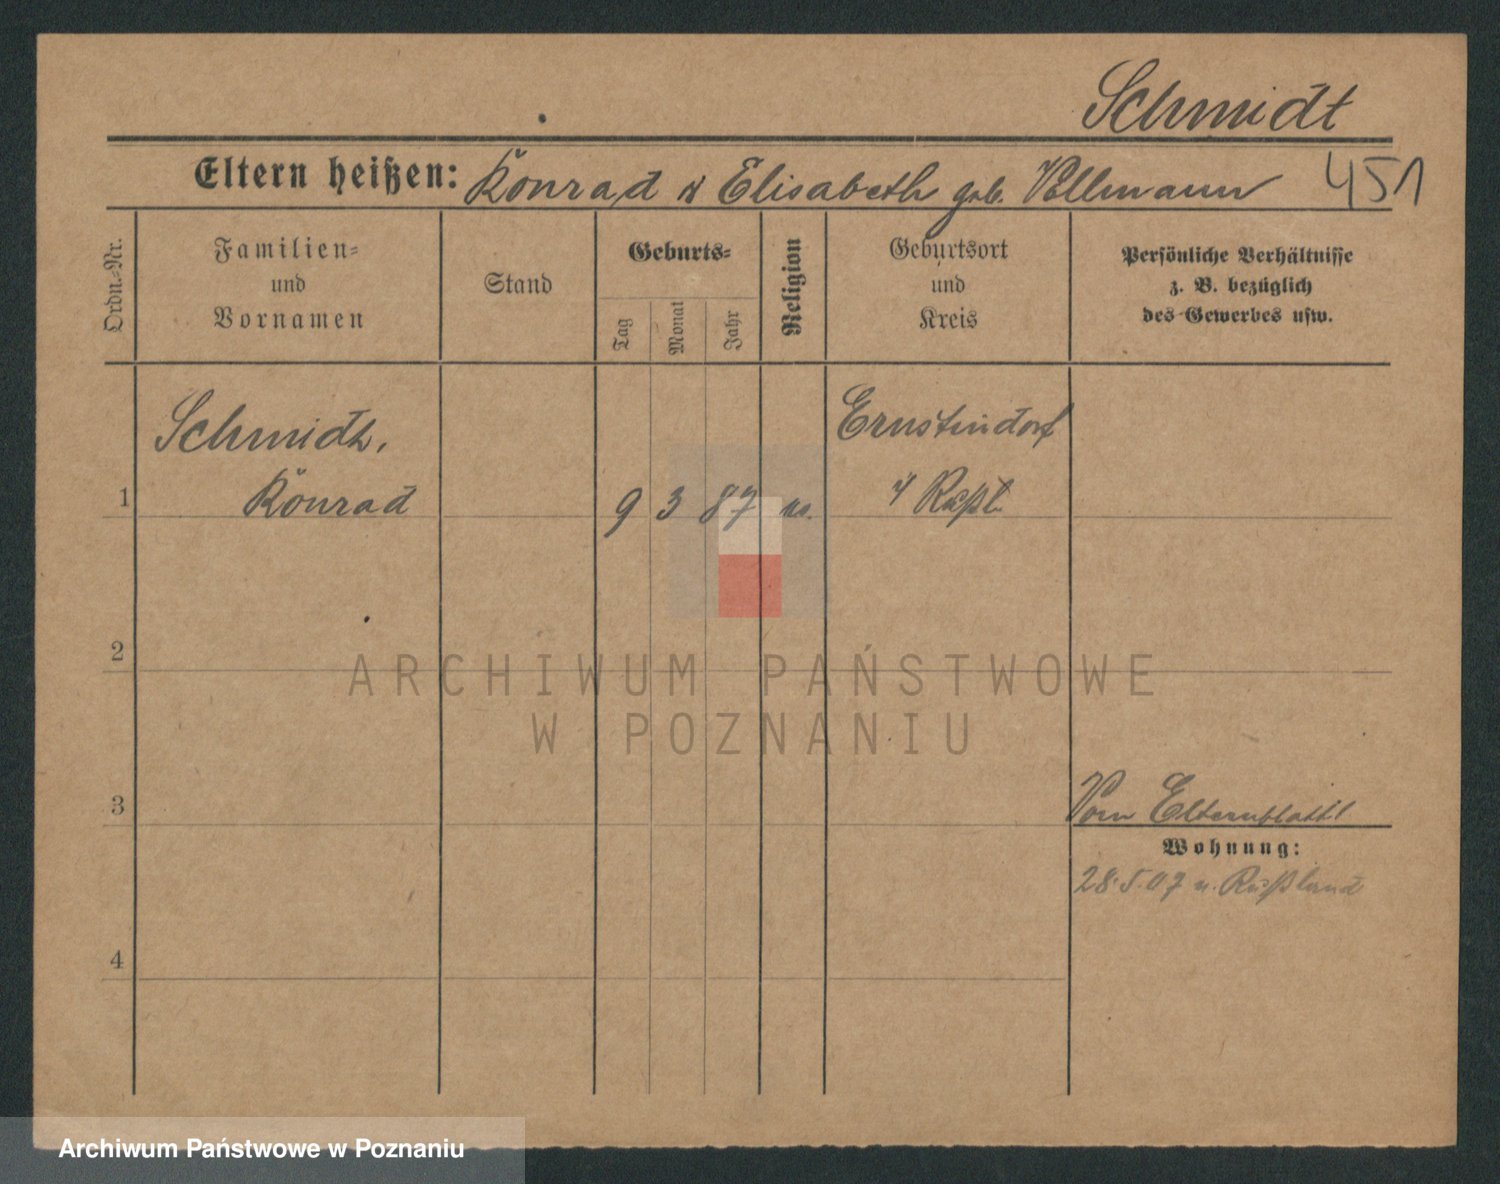 Schmidt
Eltern heißen: Konrad u Elisabeth geb. Vollmann 451
Ordn.-Nr.
Familien-
und
Vornamen
Stand
Geburts-
Tag
Monat
Jahr
Religion
Geburtsort
und
Kreis
Persönliche Verhältnisse
z. B. bezüglich
des Gewerbes usw.
Schmidt, Ernstindorf
1 Konrad 9 3 87 Rußl.
2
ARCHIWUM PAŃSTWOWE
W POZNANIU
3 Vom Elternblatt
Wohnung:
28.5.07 n. Rußland
4
Archiwum Państwowe w Poznaniu